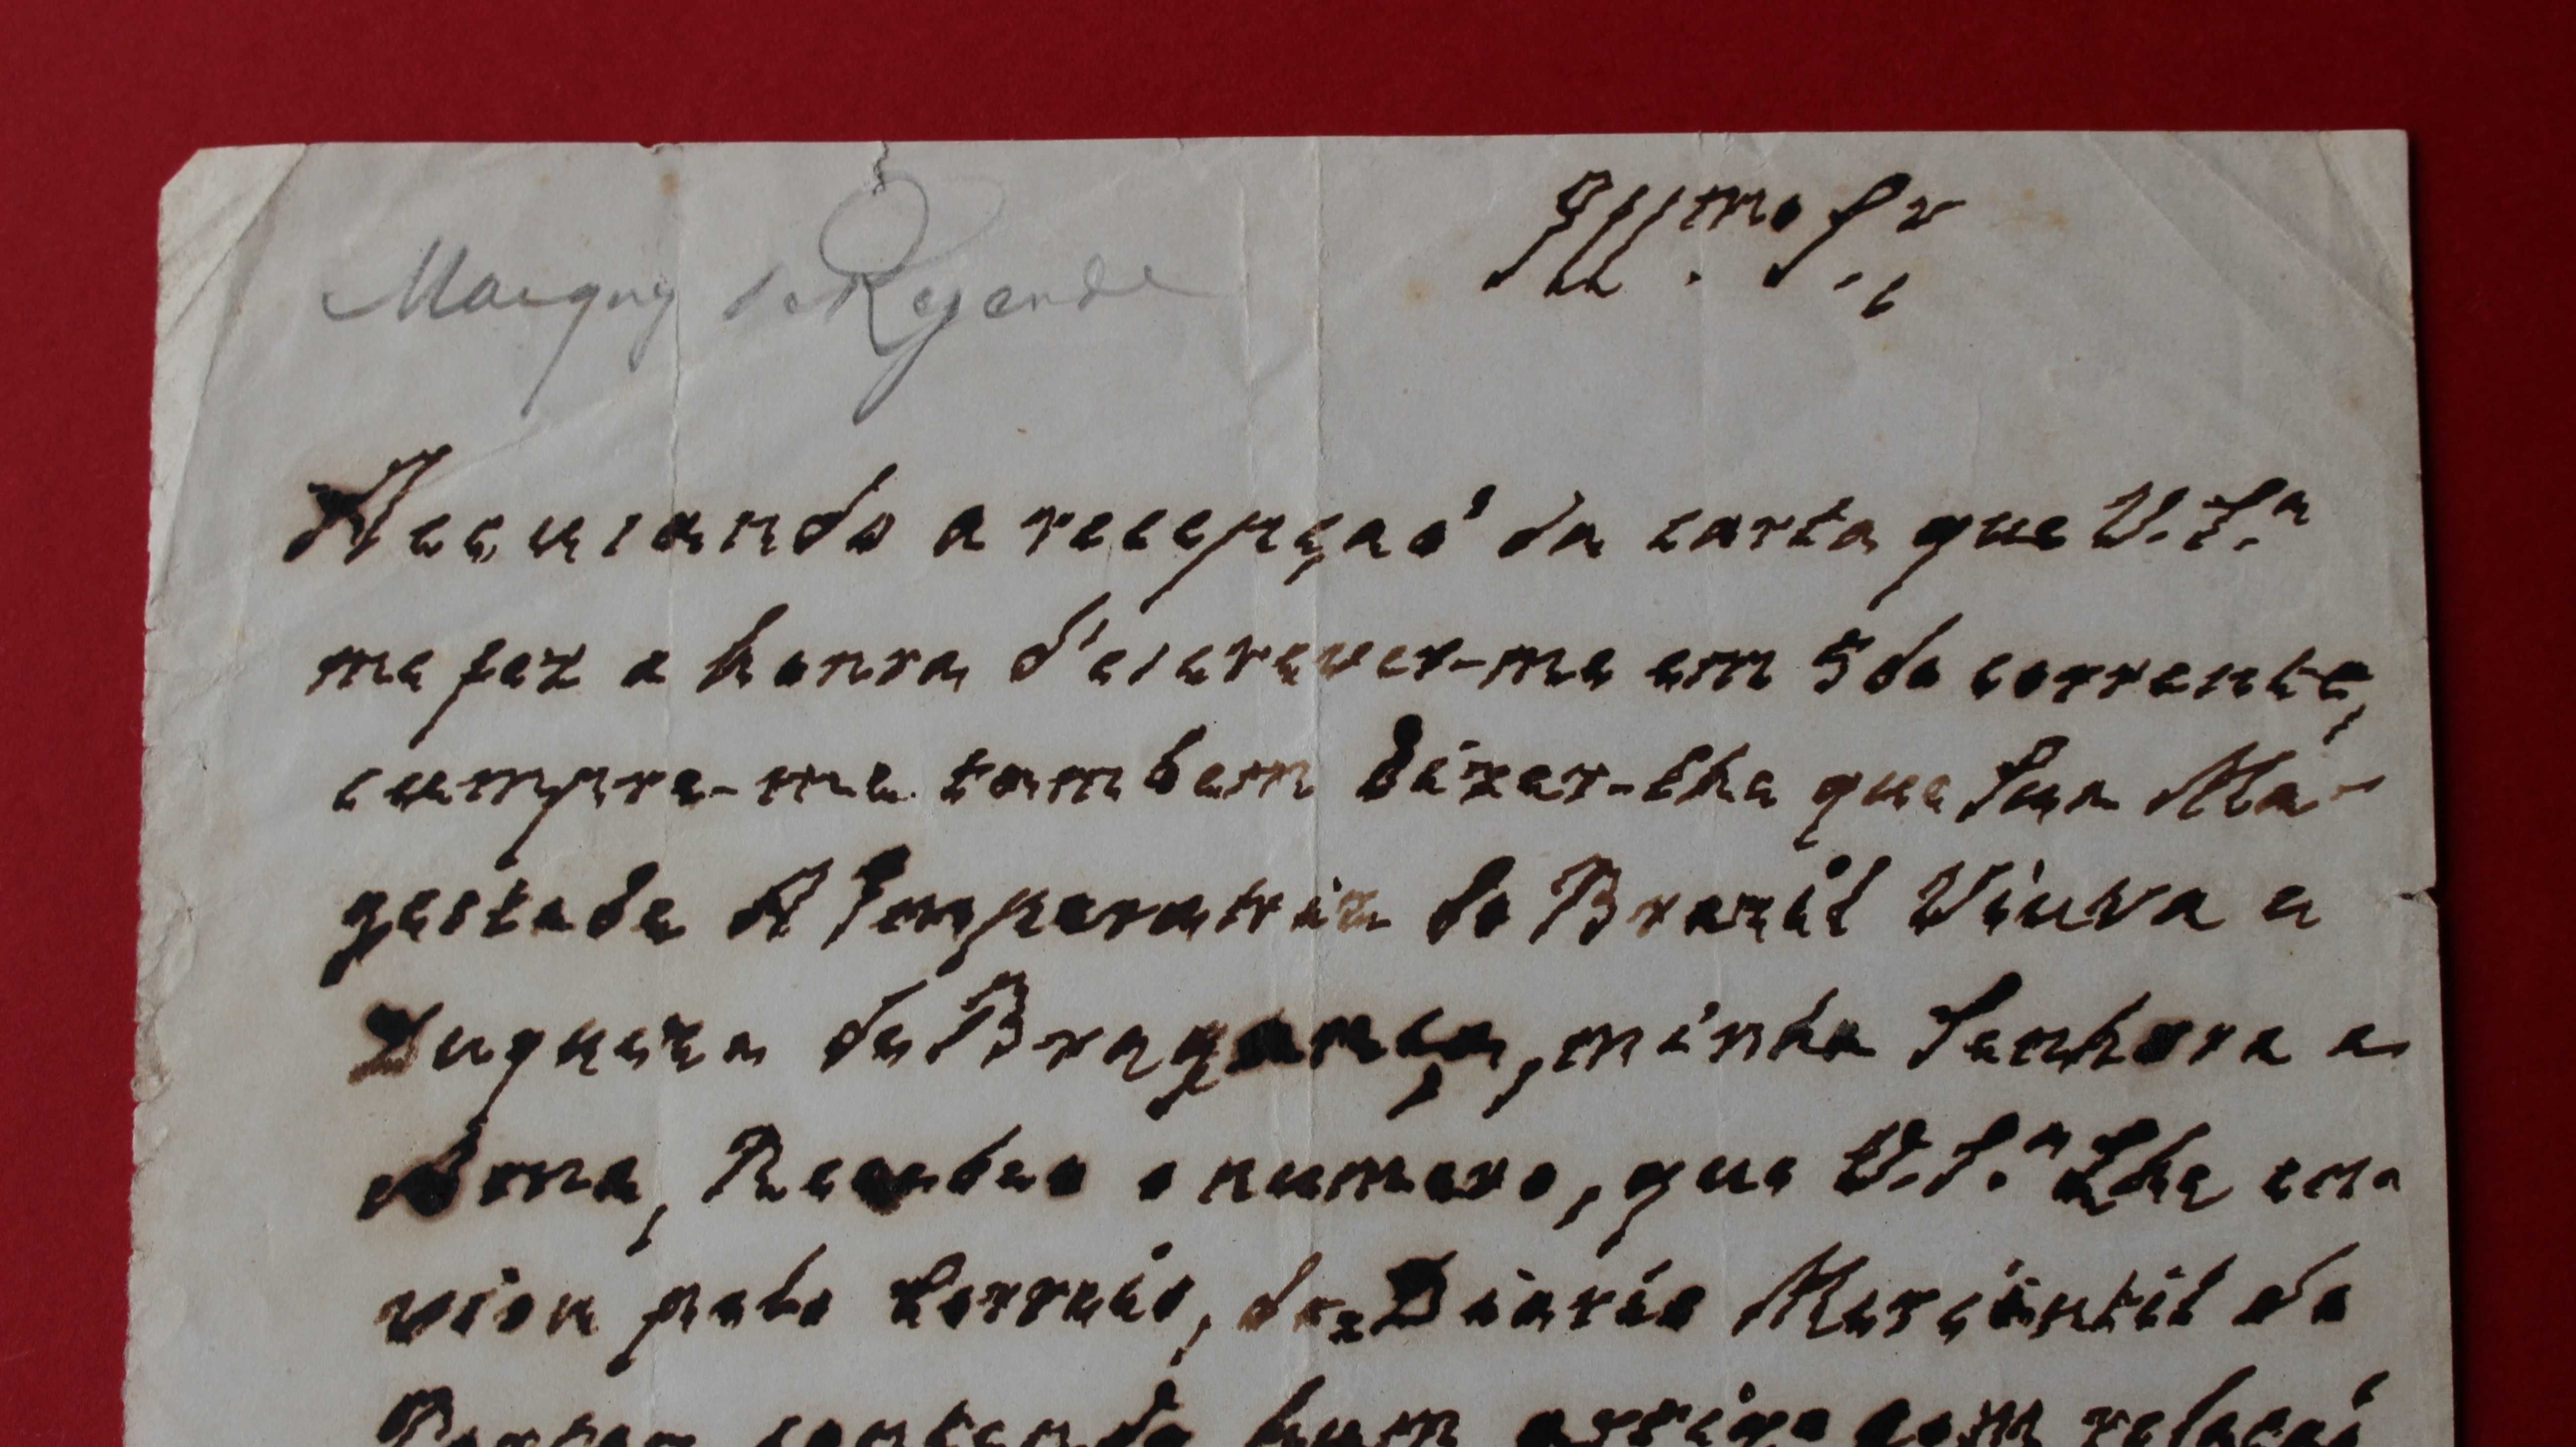 Marquez de Rezende
Illmo. Sr.,
Accusando a recepçaõ da carta que V. S.a
me fez a honra d'escrever-me em 5 do corrente,
cumpre-me tambem dizer-lhe que Sua Ma-
gestade A Imperatriz do Brazil Viuva e
Duqueza de Bragança, minha Senhora e
Ama, Recebeo o numero, que V. S.a Lhe en-
viou pelo Correio, do = Diario Mercantil do
Porto = contendo hum artigo com relaçaõ